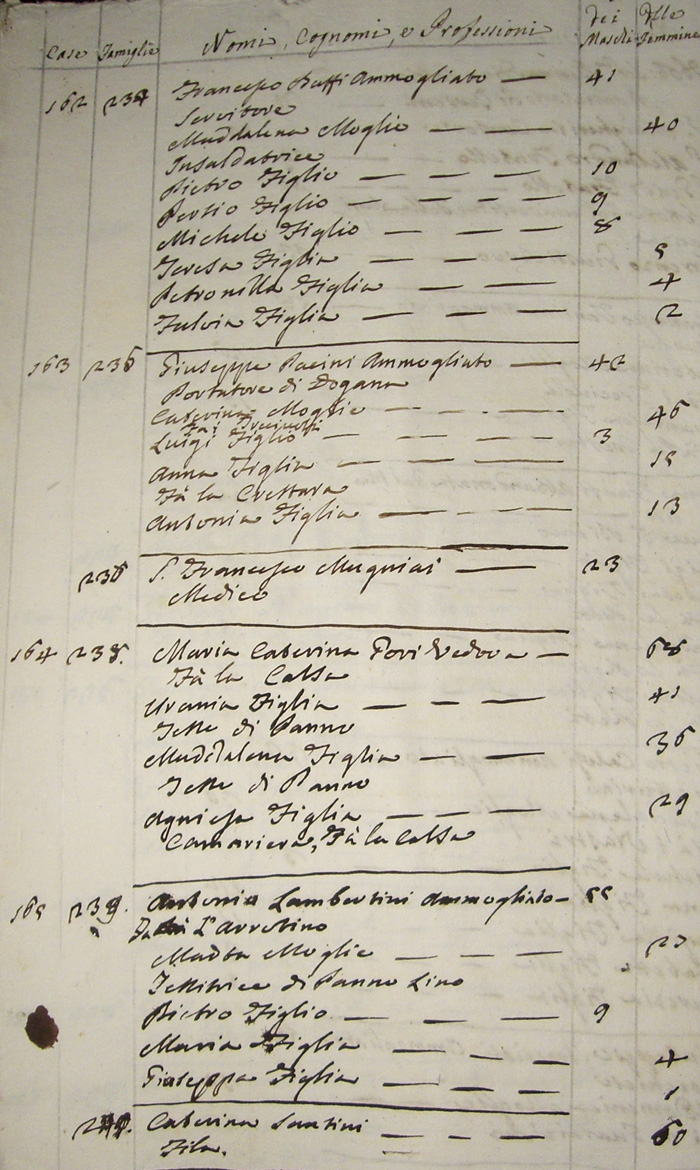 Case Famiglie Nomi, Cognomi, e Professioni dei Maschi delle Femmine
162 234 Francesco Buffi Ammogliato — 41
Servitore
Maddalena Moglie — — — 40
Insaldatrice
Pietro Figlio — — — 10
Persio Figlio — — — 9
Michele Figlio — — — 8
Teresa Figlia — — — 5
Petronilla Figlia — — — 4
Fulvia Figlia — — — 2
163 235 Giuseppe Pacini Ammogliato — 42
Portatore di Dogana
Caterina Moglie — — — 46
Fa i
Luigi Figlio — — — 3
Anna Figlia — — — 15
Fà la
Antonia Figlia — — — 13
236 S. Francesco Mugniai — 23
Medico
164 238. Maria Caterina Pori Vedova — 68
Fà la Calsa
Urania Figlia — — — 41
Tesse di Panno
Maddalena Figlia — — 36
Tesse di Panno
Agniesa Figlia — — — 29
Camariera, Fà la Calsa
165 239. Antonio Lambertini Ammogliato — 55
Fa L'arrotino
Moglie — — — 27
Tessitrice di Panno Lino
Pietro Figlio — — — 9
Maria Figlia — — — 4
Giuseppa Figlia — — — 1
Caterina Santini — — — 60
Fila.